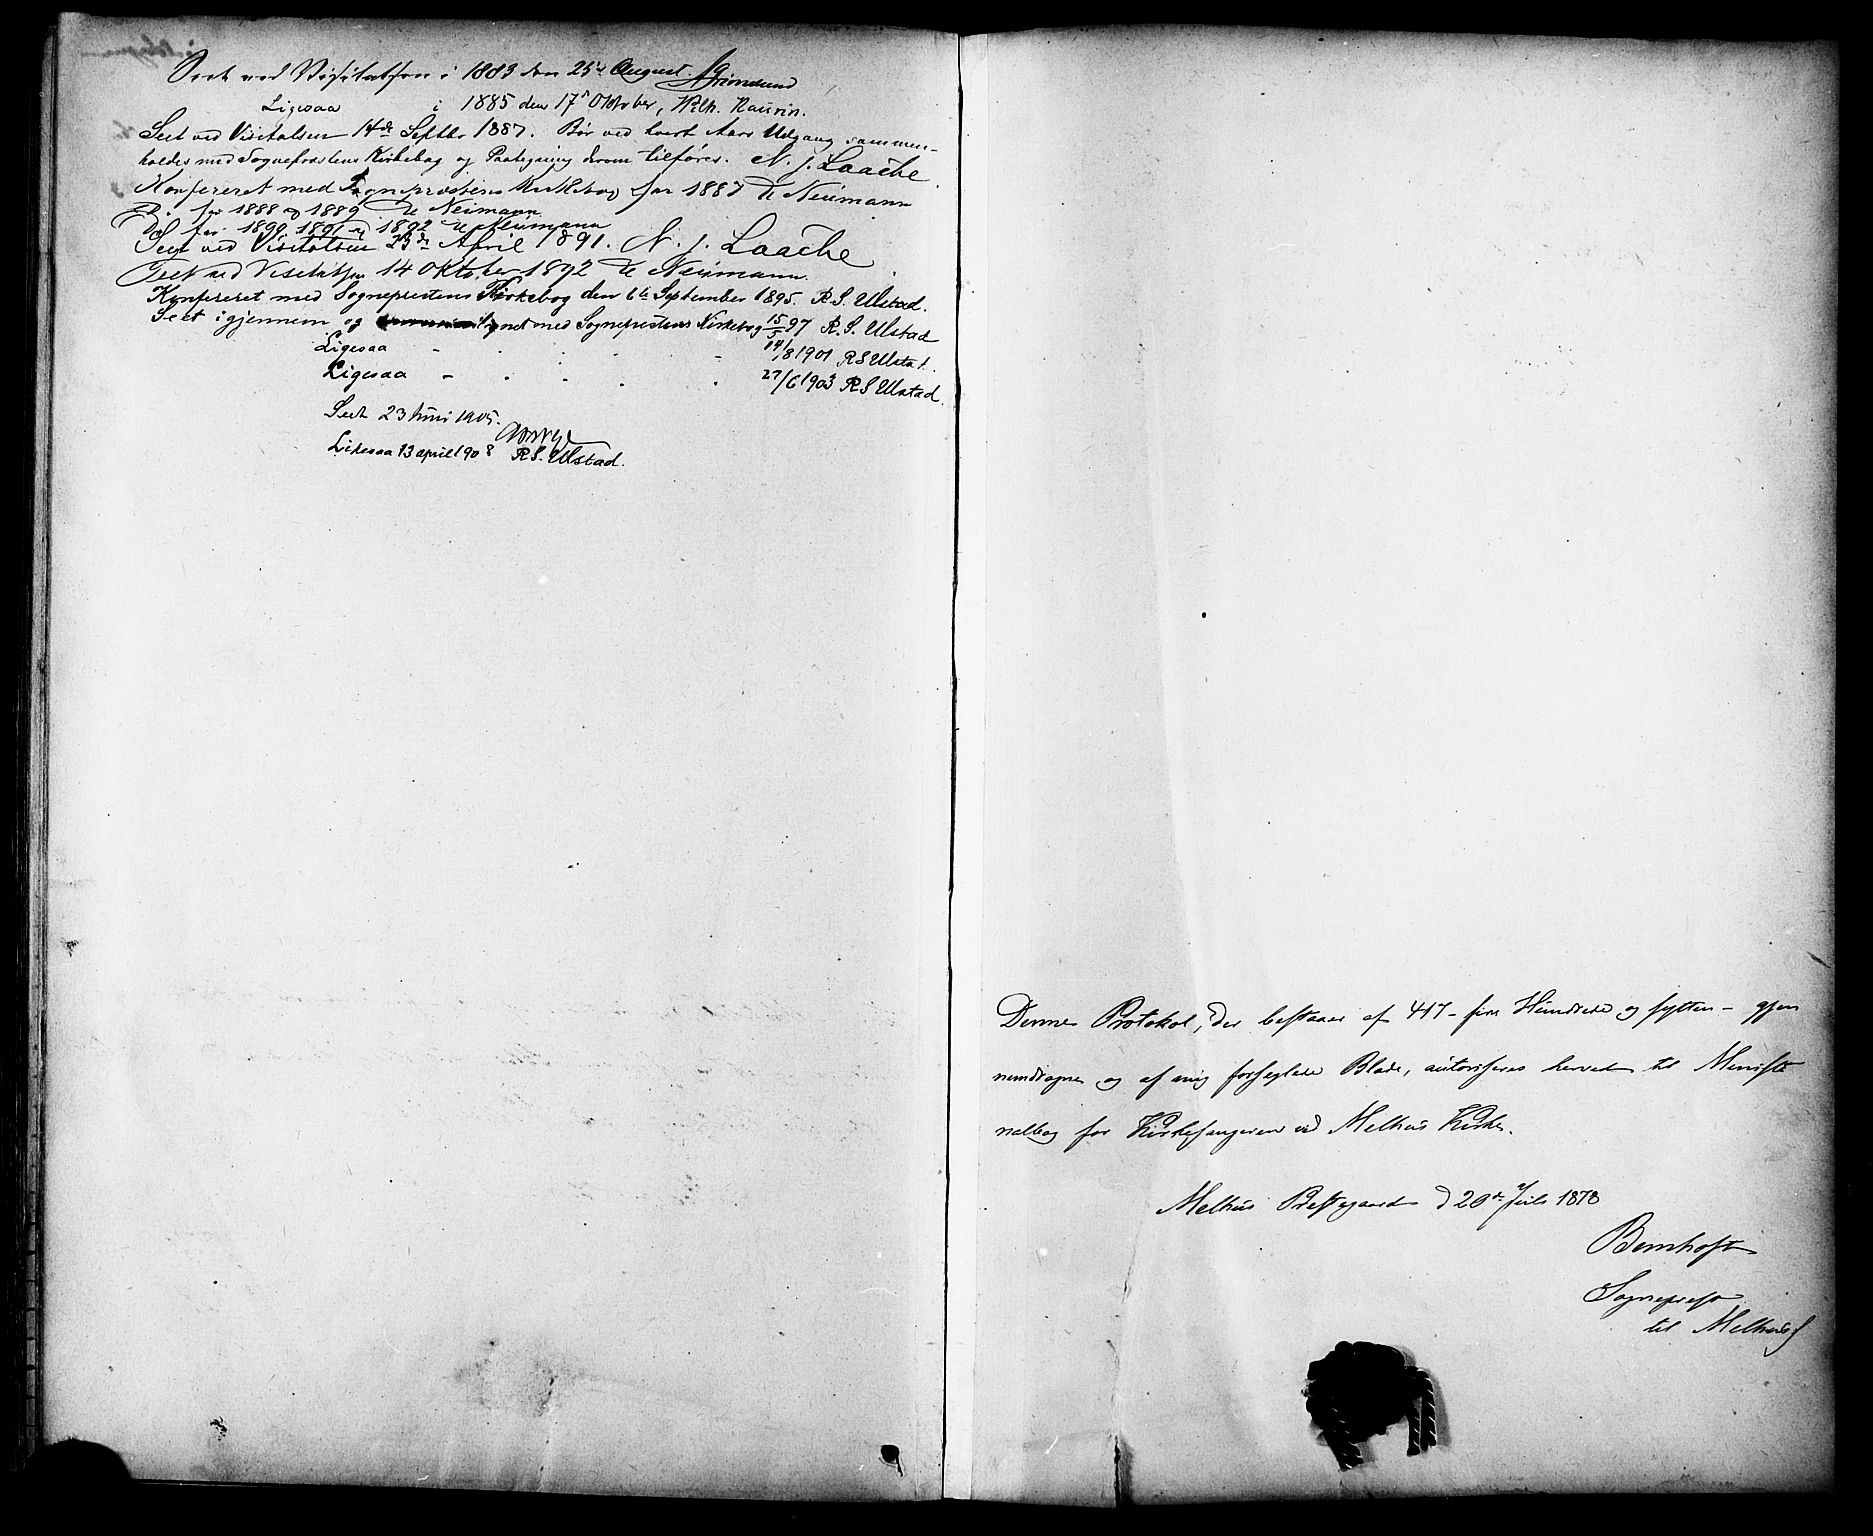 Seet ved Visitatsen i 1883 den 25de August. Grimelund
Ligesaa i 1885 den 17de Oktober, Wilh. Naurin.
Seet ved Visitatsen 14de Septbr 1887. Bør ved hvert Aars Udgang sammen-
holdes med Sogneprestens Kirkebog og Paategning derom tilføres. N. J. Laache.
Konfereret med Sogneprestens Kirkebog for 1887 Neumann
Do. for 1888 og 1889 Neumann
Do for 1890, 1891 og 1892 Neumann
Seet ved Visitatsen 23de April 1891. N. J. Laache
Seet ved Visitatsen 14 Oktober 1892 Neumann.
Konfereret med Sogneprestens Kirkebog den 6te September 1895. R. S. Ulstad.
Seet igjennem og lignet med Sogneprestens Kirkebog 15/5 97 R. S. Ulstad
Ligesaa - 14/8 1901 R S Ulstad.
Ligesaa - 27/6 1903 R S Ulstad.
Seet 23 Juni 1905.
Likesaa 13 april 1908 R. S. Ulstad.
Denne Protokol, der bestaaer af 417 - fire Hundrede og sytten - gjen
nemdragne og af mig forseglede Blade, autoriseres herved til Ministe
rialbog for Kirkesangeren ved Melhus Kirke.
Melhus Prestegaard d 20de Juli 1878
Bernhoft
Sogneprest
til Melhus